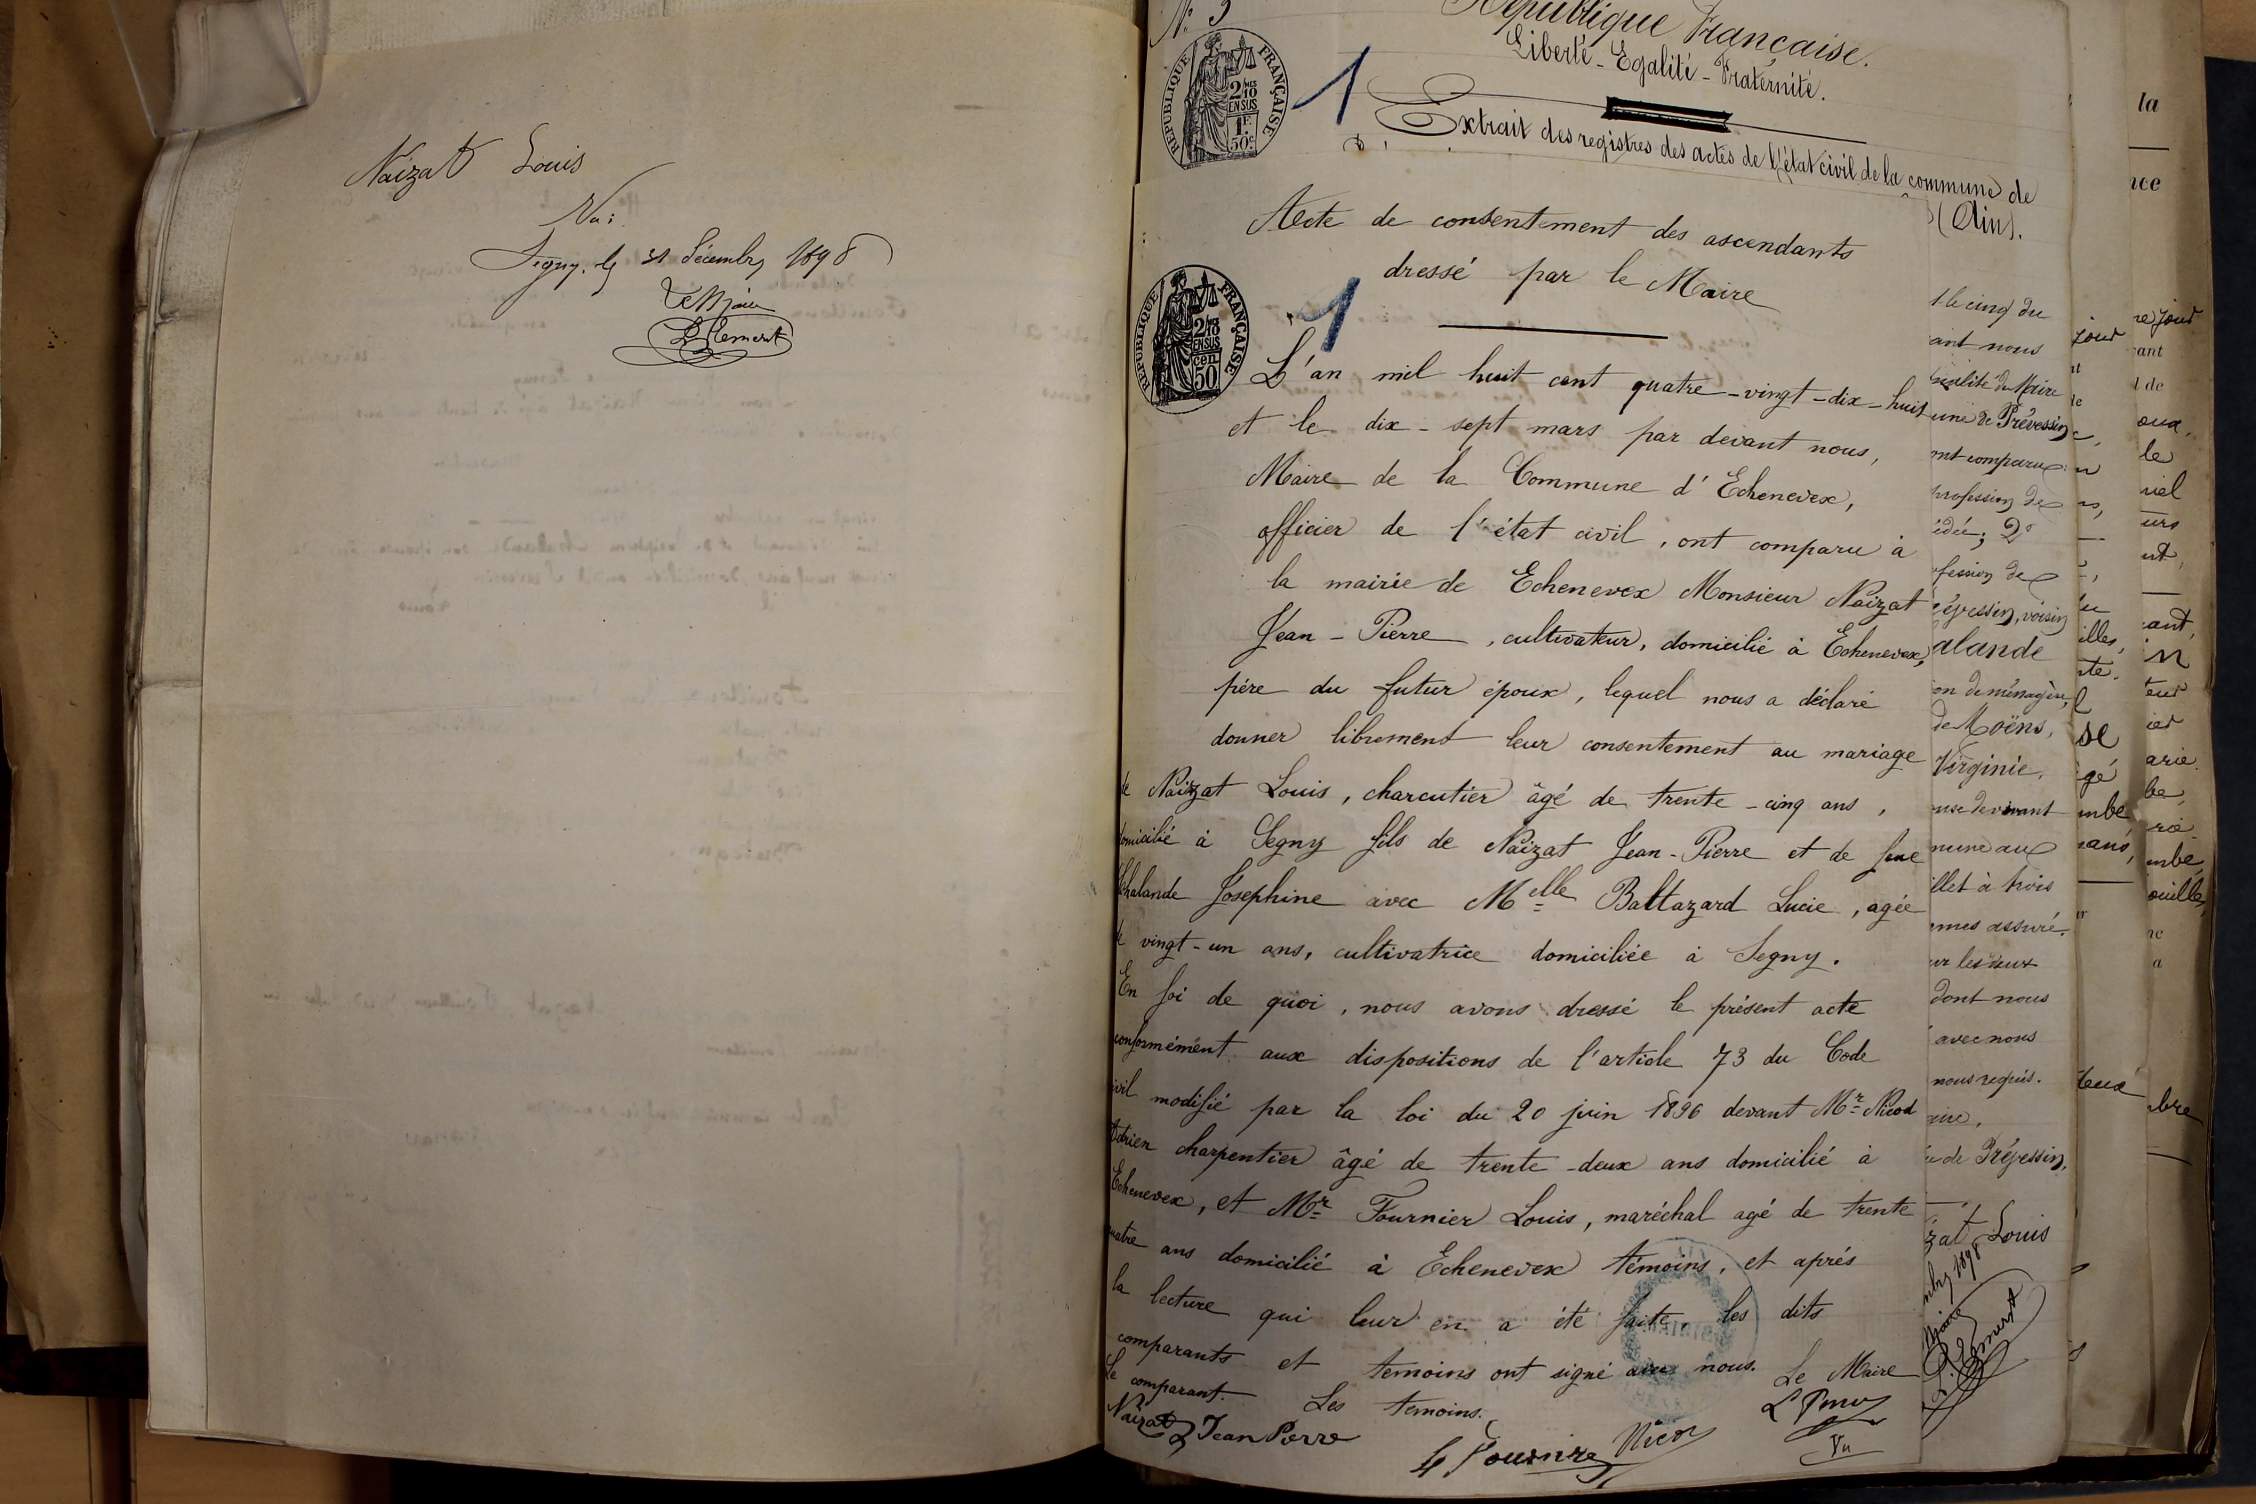 Naizat Louis
Vu:
Segny, le 31 Décembre 1898
Le Maire
L. Clement
N.º 3
République Française.
Liberté - Egalité - Fraternité.
RÉPUBLIQUE FRANÇAISE
2/10 EN SUS
1F 50c
1
Extrait des registres des actes de l'état civil de la commune de
(Ain).
Acte de consentement des ascendants
dressé par le Maire
RÉPUBLIQUE FRANÇAISE
2/10 EN SUS
cen 50
1
L'an mil huit cent quatre-vingt-dix-huit
et le dix-sept mars par devant nous,
Maire de la Commune d'Echenevex,
officier de l'état civil, ont comparu à
la mairie de Echenevex Monsieur Naizat
Jean-Pierre, cultivateur, domicilié à Echenevex,
père du futur époux, lequel nous a déclaré
donner librement leur consentement au mariage
de Naizat Louis, charcutier âgé de trente-cinq ans,
domicilié à Segny fils de Naizat Jean-Pierre et de feue
Chalande Josephine avec Melle Baltazard Lucie, agée
de vingt-un ans, cultivatrice domiciliée à Segny.
En foi de quoi, nous avons dressé le présent acte
conformément aux dispositions de l'article 73 du Code
civil modifié par la loi du 20 juin 1896 devant Mr Nicod
Adrien charpentier âgé de trente-deux ans domicilié à
Echenevex, et Mr Fournier Louis, maréchal agé de trente
quatre ans domicilié à Echenevex témoins, et après
la lecture qui leur en a été faite, les dits
comparants et temoins ont signé avec nous.
Le comparant.
Les temoins.
Le Maire
Naizat Jean Pierre
L Fournier
Nicod
Vu
t le cinq du
ant nous
qualité du Maire
une de Prévessin
ont comparu:
profession de
édée; 2º
fession de
révessin, voisin
alande
on de ménagère,
de Moëns,
Virginie,
use devivant
mune aux
illet à trois
mes assuré.
ur les deux
dont nous
avec nous
nous requis.
aire,
de Prévessin,
zat Louis
mbre 1898
Maire
L. Clement
jour
illes,
nte.
se
gé
mbe
sans,
deux
la
nce
re jour
rant
t de
oux,
le
riel
urs
nt,
ant,
n
teur
ier
arie
be,
rie
mbé,
ouille,
ne
a
bre